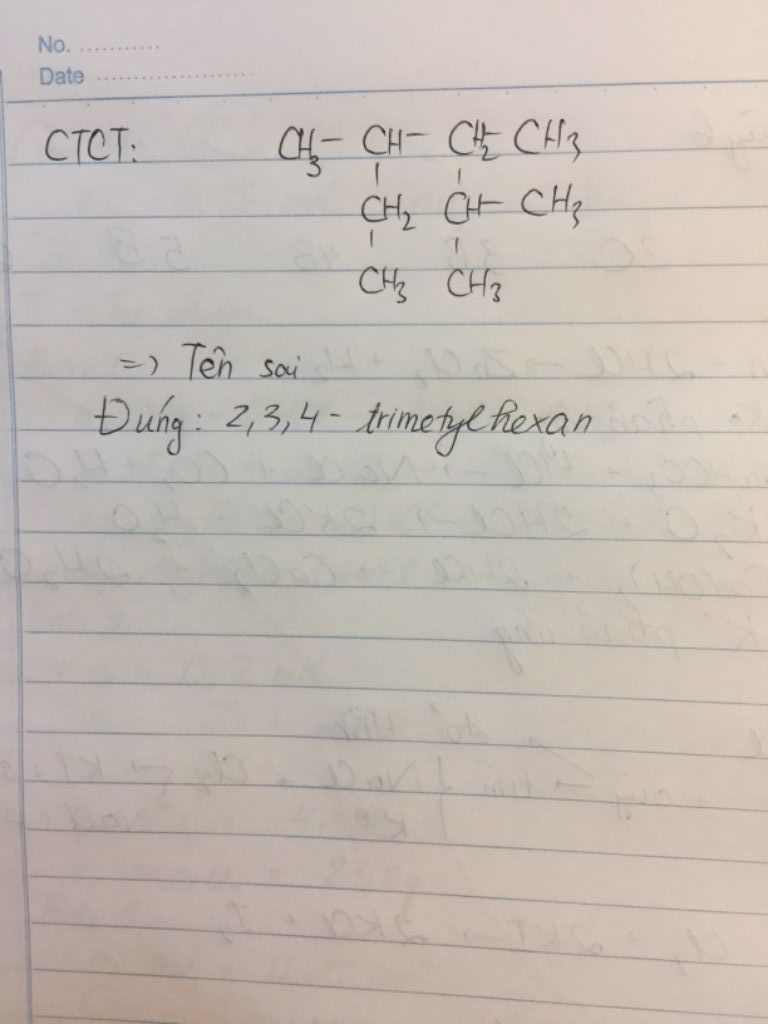 No. ...........
Date ......................
CTCT: CH3- CH- CH2 CH3
CH2 CH- CH3
CH3 CH3
=> Tên sai
Đúng: 2,3,4- trimetylhexan